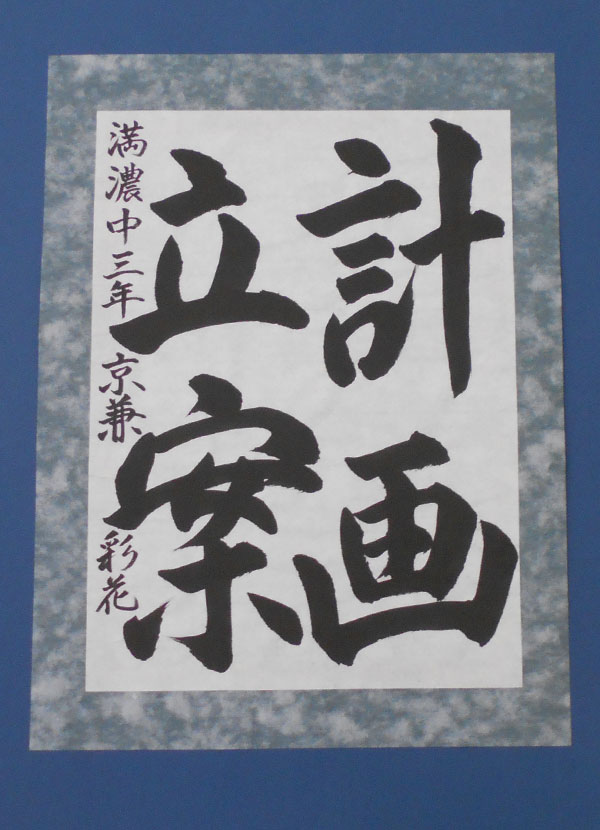 計画
立案
満濃中三年 京兼 彩花